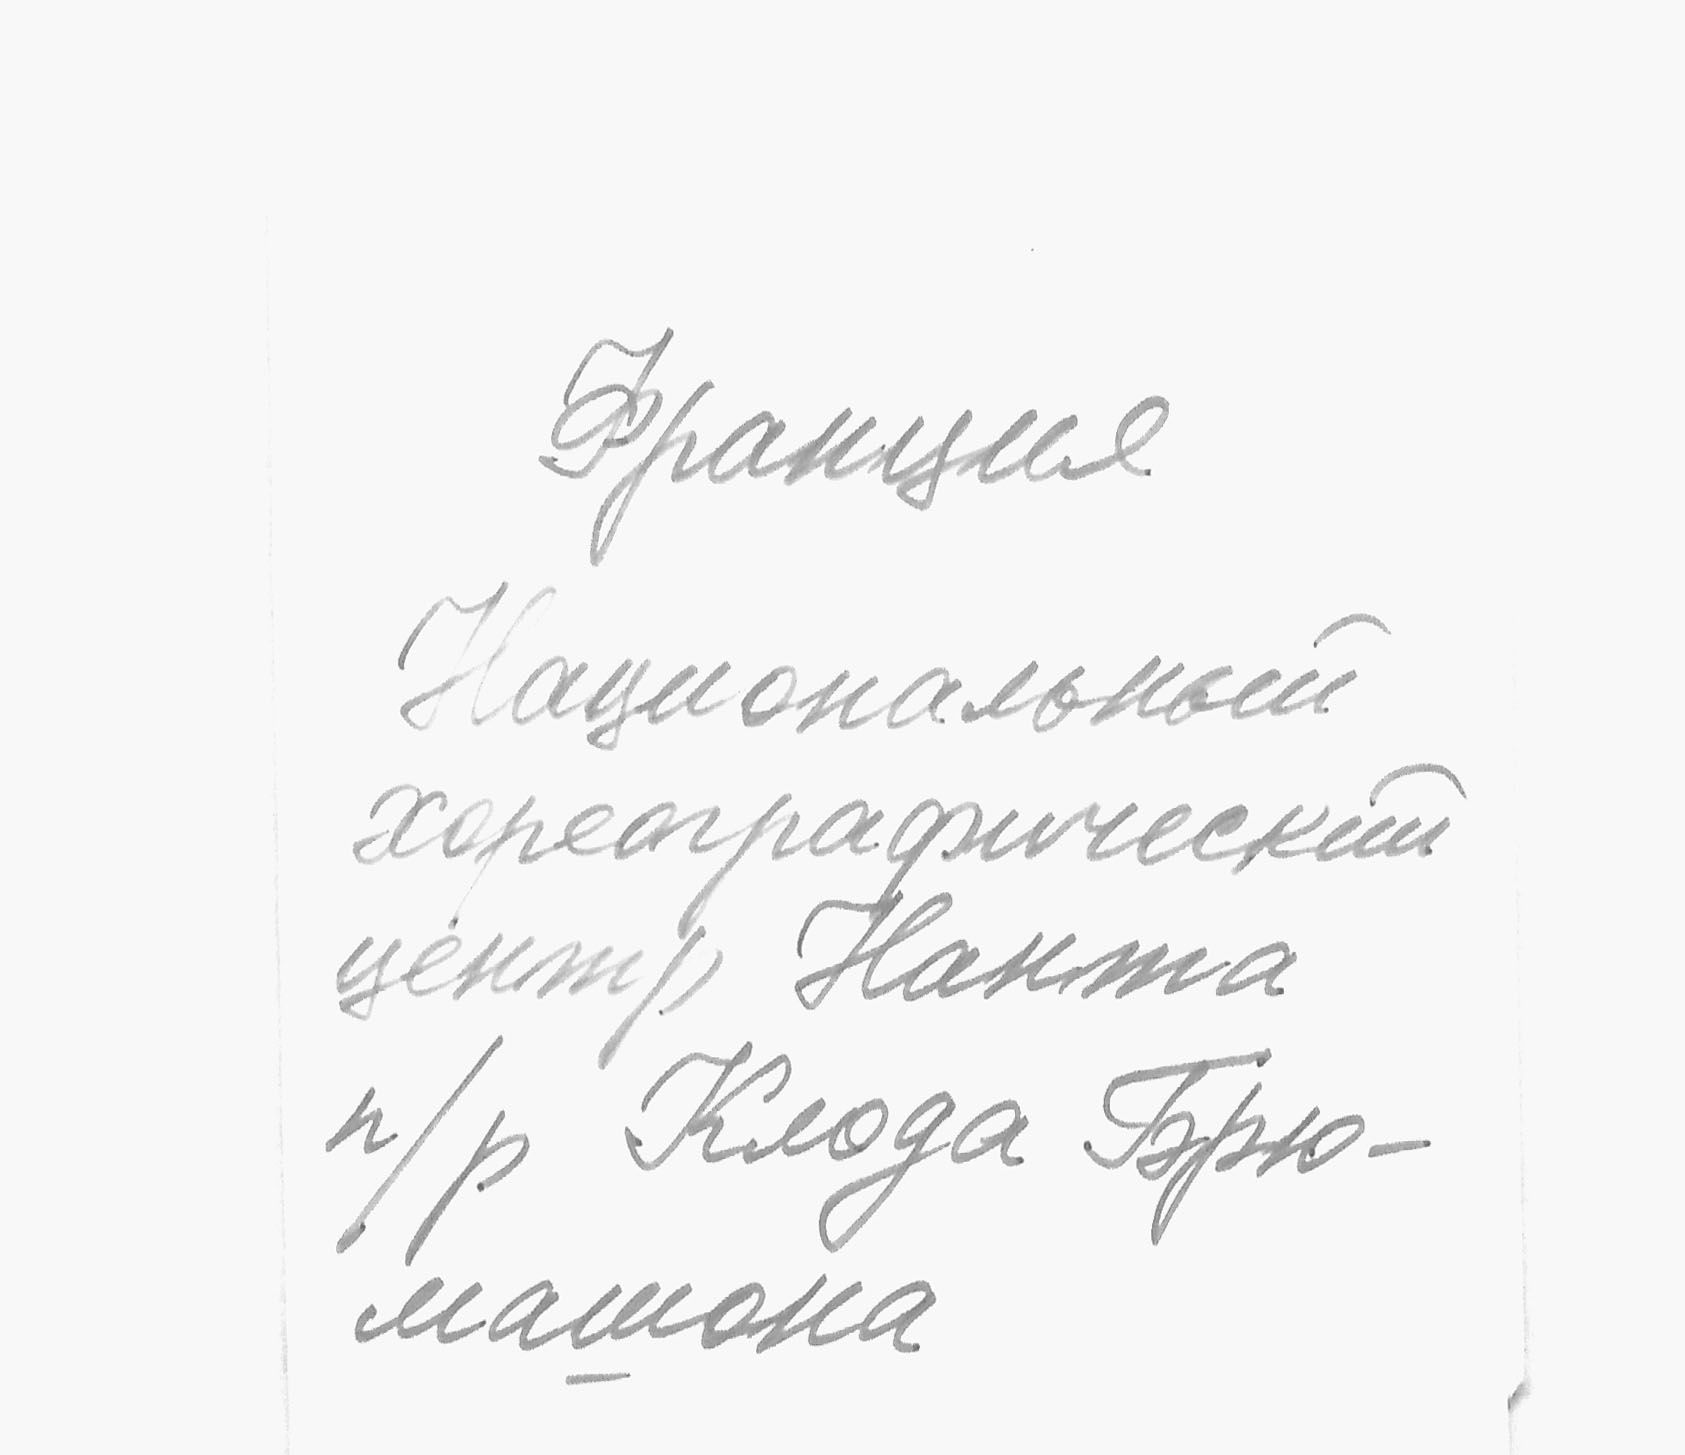 Франция
Национальный
хореографический
центр Нанта
п/р Клода Брю-
машона